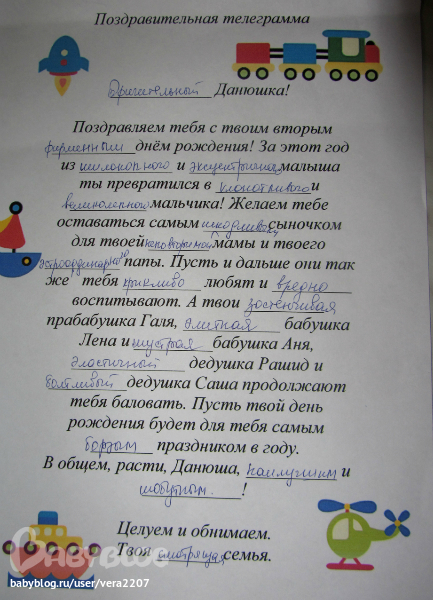 Поздравительная телеграмма
Оригинальный Данюшка!
Поздравляем тебя с твоим вторым
фирменным днём рождения! За этот год
из шилопопного и эксцентричная малыша
ты превратился в хлопотливого и
великолепного мальчика! Желаем тебе
оставаться самым шкодливым сыночком
для твоей неповторимой мамы и твоего
эстраординарного папы. Пусть и дальше они так
же тебя крикливо любят и вредно
воспитывают. А твои застенчивая
прабабушка Галя, элитная бабушка
Лена и шустрая бабушка Аня,
эластичный дедушка Рашид и
болтливый дедушка Саша продолжают
тебя баловать. Пусть твой день
рождения будет для тебя самым
борзым праздником в году.
В общем, расти, Данюша, наилучшим и
шобутным. !
Целуем и обнимаем.
Твоя смотрящая семья.
BABYBLOG
babyblog.ru/user/vera2207